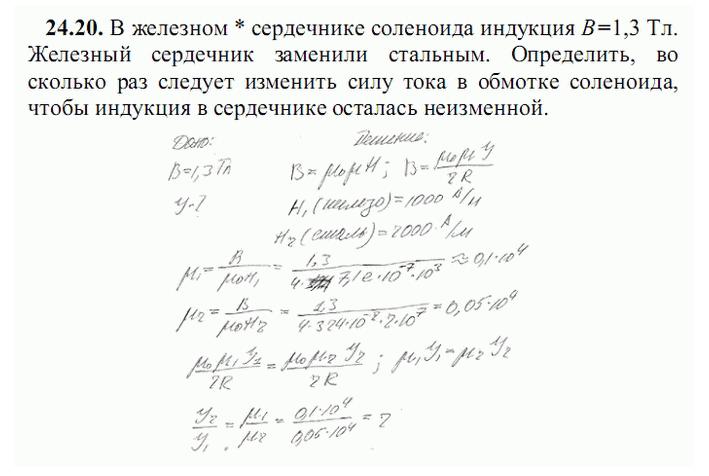 24.20. В железном * сердечнике соленоида индукция B=1,3 Тл.
Железный сердечник заменили стальным. Определить, во
сколько раз следует изменить силу тока в обмотке соленоида,
чтобы индукция в сердечнике осталась неизменной.
Дано: Решение:
B=1,3Тл B=μ₀μH; B=μ₀μ₁У/2R
У-? H₁(железо)=1000 А/м
H₂(сталь)=2000 А/м
μ₁=B/μ₀H₁=1,3/4·10⁻⁷·10³≈0,1·10⁴
μ₂=B/μ₀H₂=1,3/=0,05·10⁴
μ₀μ₁У₁/2R=μ₀μ₂У₂/2R; μ₁У₁=μ₂У₂
У₂/У₁=μ₁/μ₂=0,1·10⁴/0,05·10⁴=2